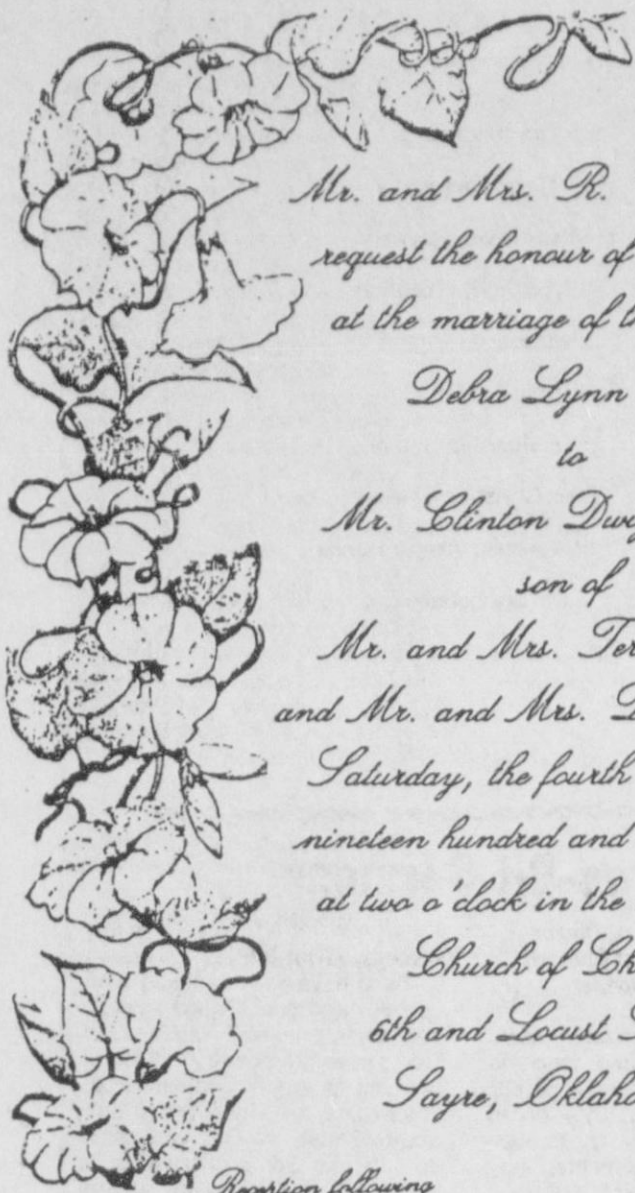 Mr. and Mrs. R.
request the honour of
at the marriage of
Debra Lynn
to
Mr. Clinton
son of
Mr. and Mrs.
and Mr. and Mrs.
Saturday, the fourth
nineteen hundred and
at two o'clock in the
Church of
6th and Locust
Sayre,
Reception following